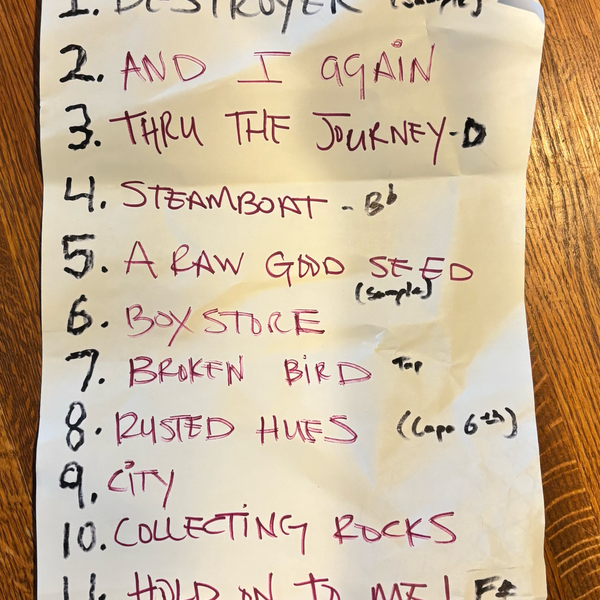 1. DESTROYER (Sample)
2. AND I AGAIN
3. THRU THE JOURNEY - D
4. STEAMBOAT - Bb
5. A RAW GOOD SEED
(Sample)
6. BOX STORE
7. BROKEN BIRD Tap
8. RUSTED HUES (Capo 6th)
9. CITY
10. COLLECTING ROCKS
11. HOLD ON TO ME! F#